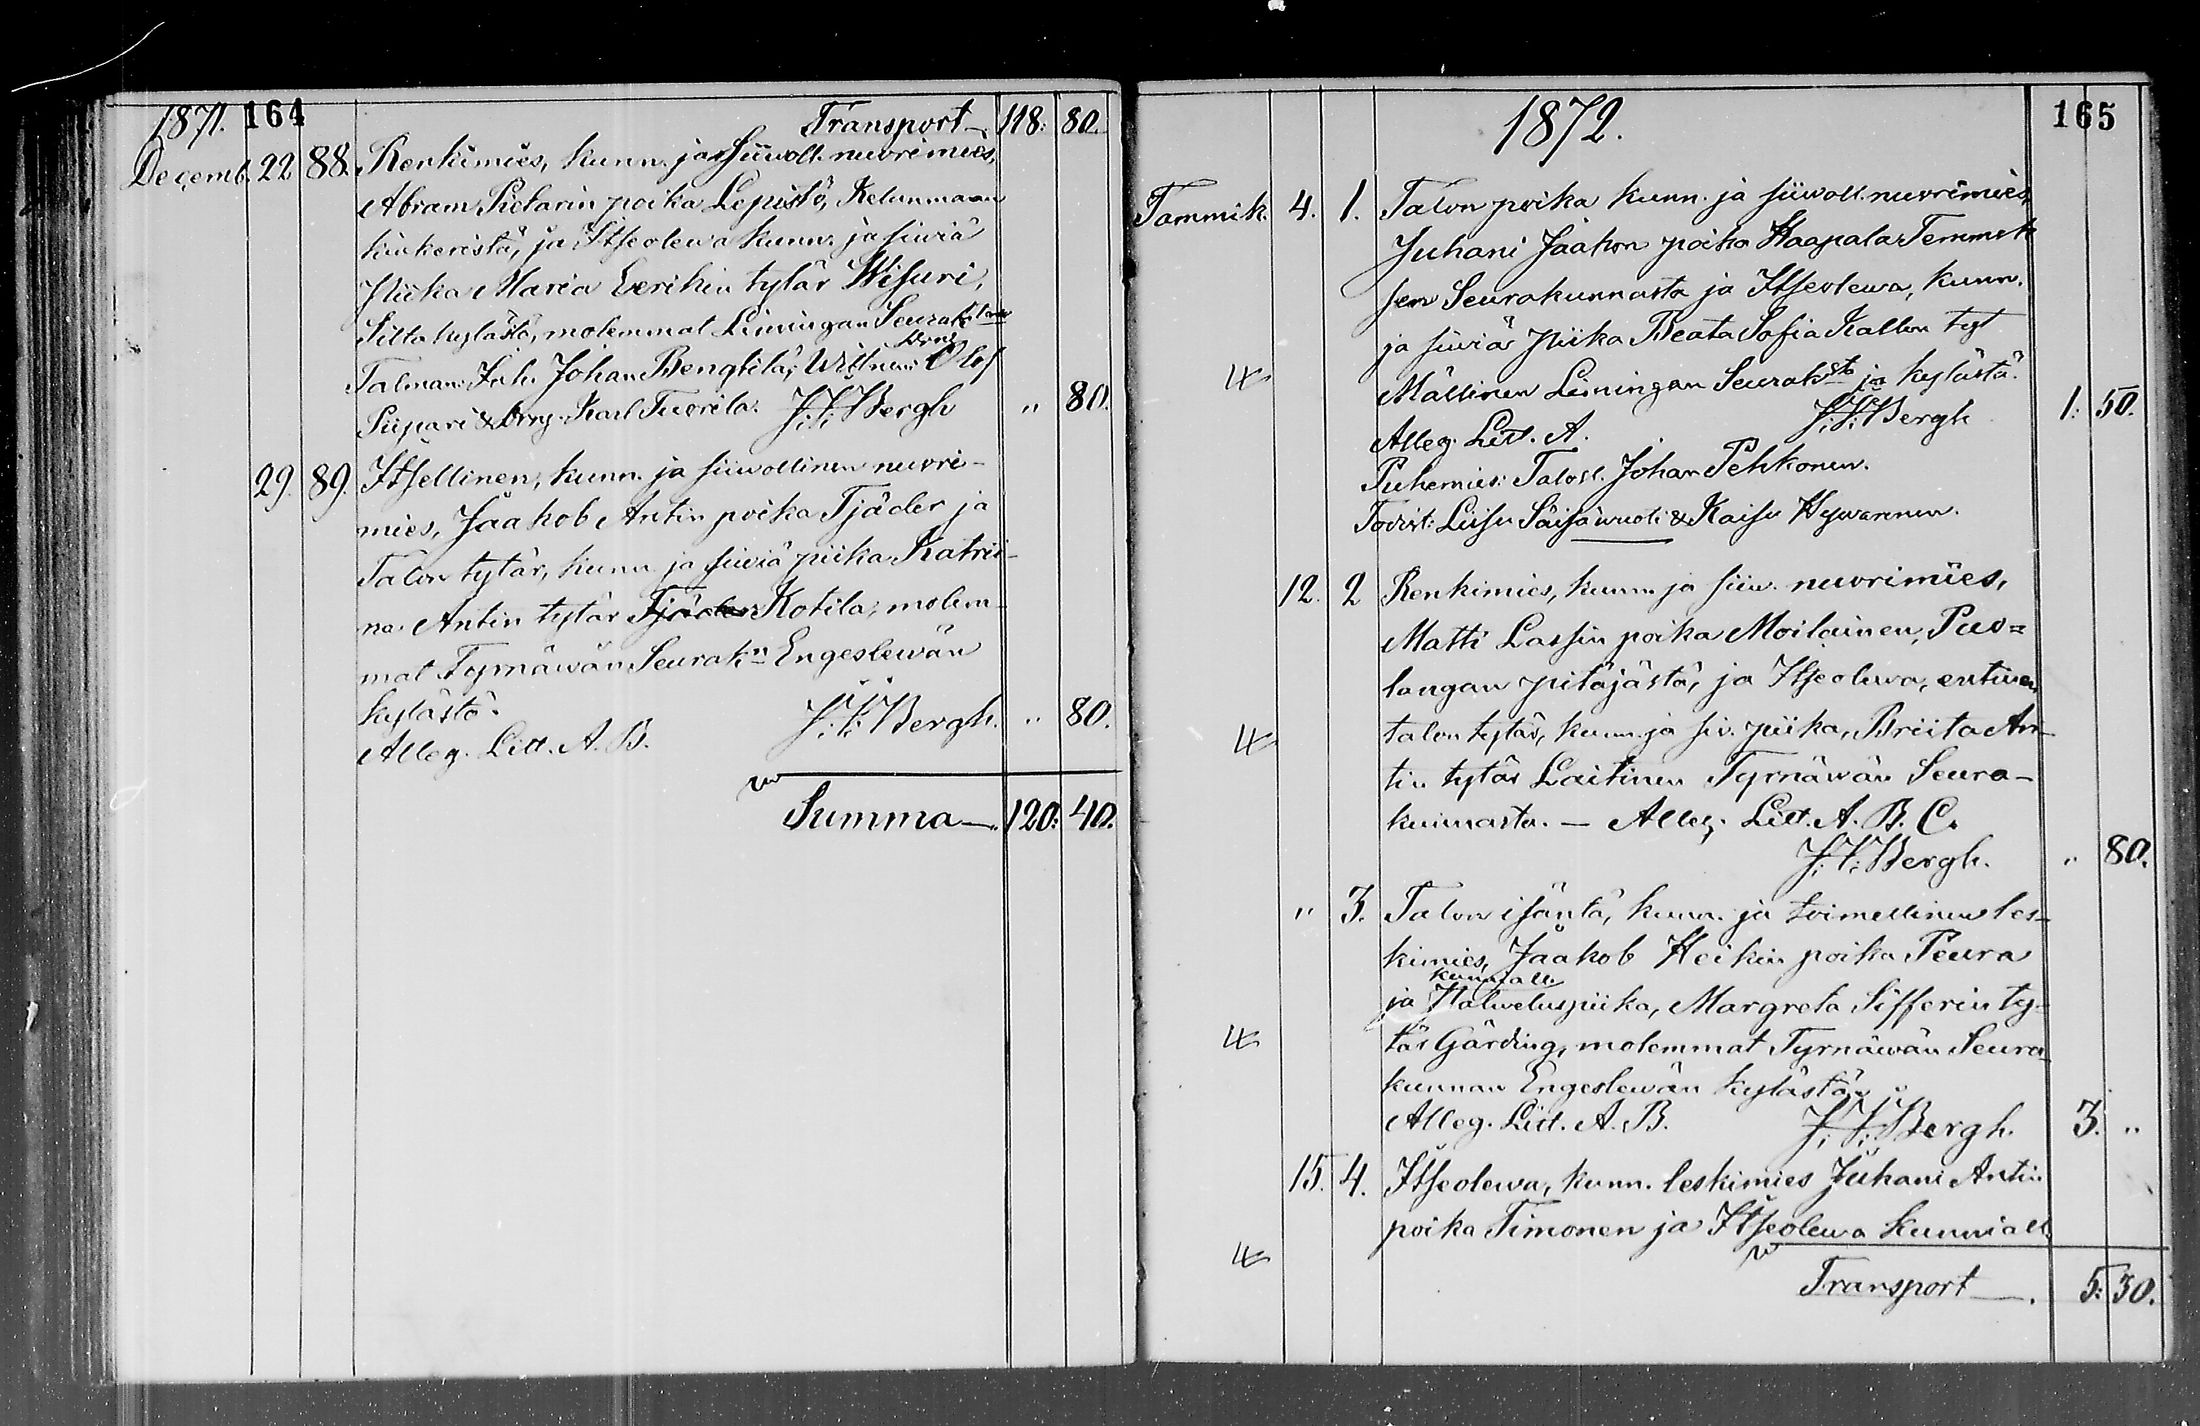 1871. 164
Transport—. 118: 80.
Decemb. 22 88. Renkimies, kunn. ja siiwoll. nuorimies,
Abram Pietarin poika Lepistö, Ketunmaan
kinkeristä, ja Itseolewa kunn. ja siwiä
Piika Maria Eerikin tytär Wisuri,
Silta kylästä, molemmat Limingan Seurak.
Talman: Inh. Johan Bengtilä; Wittnen: Olof
Piipari & Drng. Karl Tuorila. J. F. Bergh " 80.
29. 89. Itsellinen, kunn. ja siiwollinen nuori-
mies, Jaakob Antin poika Tjäder ja
Talon tytär, kunn. ja siwiä piika Katrii-
na Antin tytär Tjäder Kotila, molem-
mat Tyrnäwän Seurak:n Engeslewän
kylästä.
J. F. Bergh. " 80.
Alleg. Litt. A. B.
Summa—. 120: 40.
1872. 165
Tammik. 4. 1. Talon poika kunn. ja siiwoll. nuorimies,
Juhani Jaakon poika Haapala Temmek
sen Seurakunnasta ja Itseolewa, kunn.
ja siwiä Piika Beata Sofia Kallen tyt
Mällinen Limingan Seurak:sta ja kylästä.
J. F. Bergh 1: 50.
Alleg. Litt. A.
Puhemies: Talosl. Johan Pehkonen.
Todist: Liisu Säisäwuoti & Kaisu Hywärinen.
12. 2 Renkimies, kunn. ja siiw. nuorimies,
Matti Lassin poika Moilainen, Puo=
langan pitäjästä, ja Itseolewa, entinen
talon tytär, kunn. ja siv. piika, Briita An-
tin tytär Laitinen Tyrnäwän Seura-
kunnasta. — Alleg. Litt. A. B. C.
J. F. Bergh. " 80.
" 3. Talon isäntä, kunn. ja toimellinen les-
kimies, Jaakob Heikin poika Peura
kunniall.
ja Palweluspiika, Margreta Sifferin ty-
tär Gärding, molemmat Tyrnäwän Seura-
kunnan Engeslewän kylästä.
Alleg. Litt. A. B. J. F. Bergh. 3. "
15. 4. Itseolewa, kunn. leskimies Juhani Antin
poika Timonen ja Itseolewa kunniall.
Transport—. 5: 30.